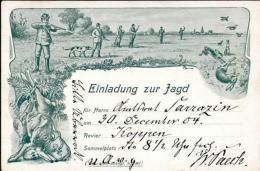 Einladung zur Jagd
für Herrn Amtsrat Sarrazin
am 30. December 04
Revier Koppen
Sammelplatz 8 1/2 Uhr früh
u. A. w. g.